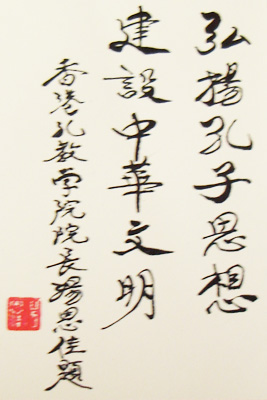 弘揚孔子思想
建設中華文明
香港孔教学院院長湯恩佳題